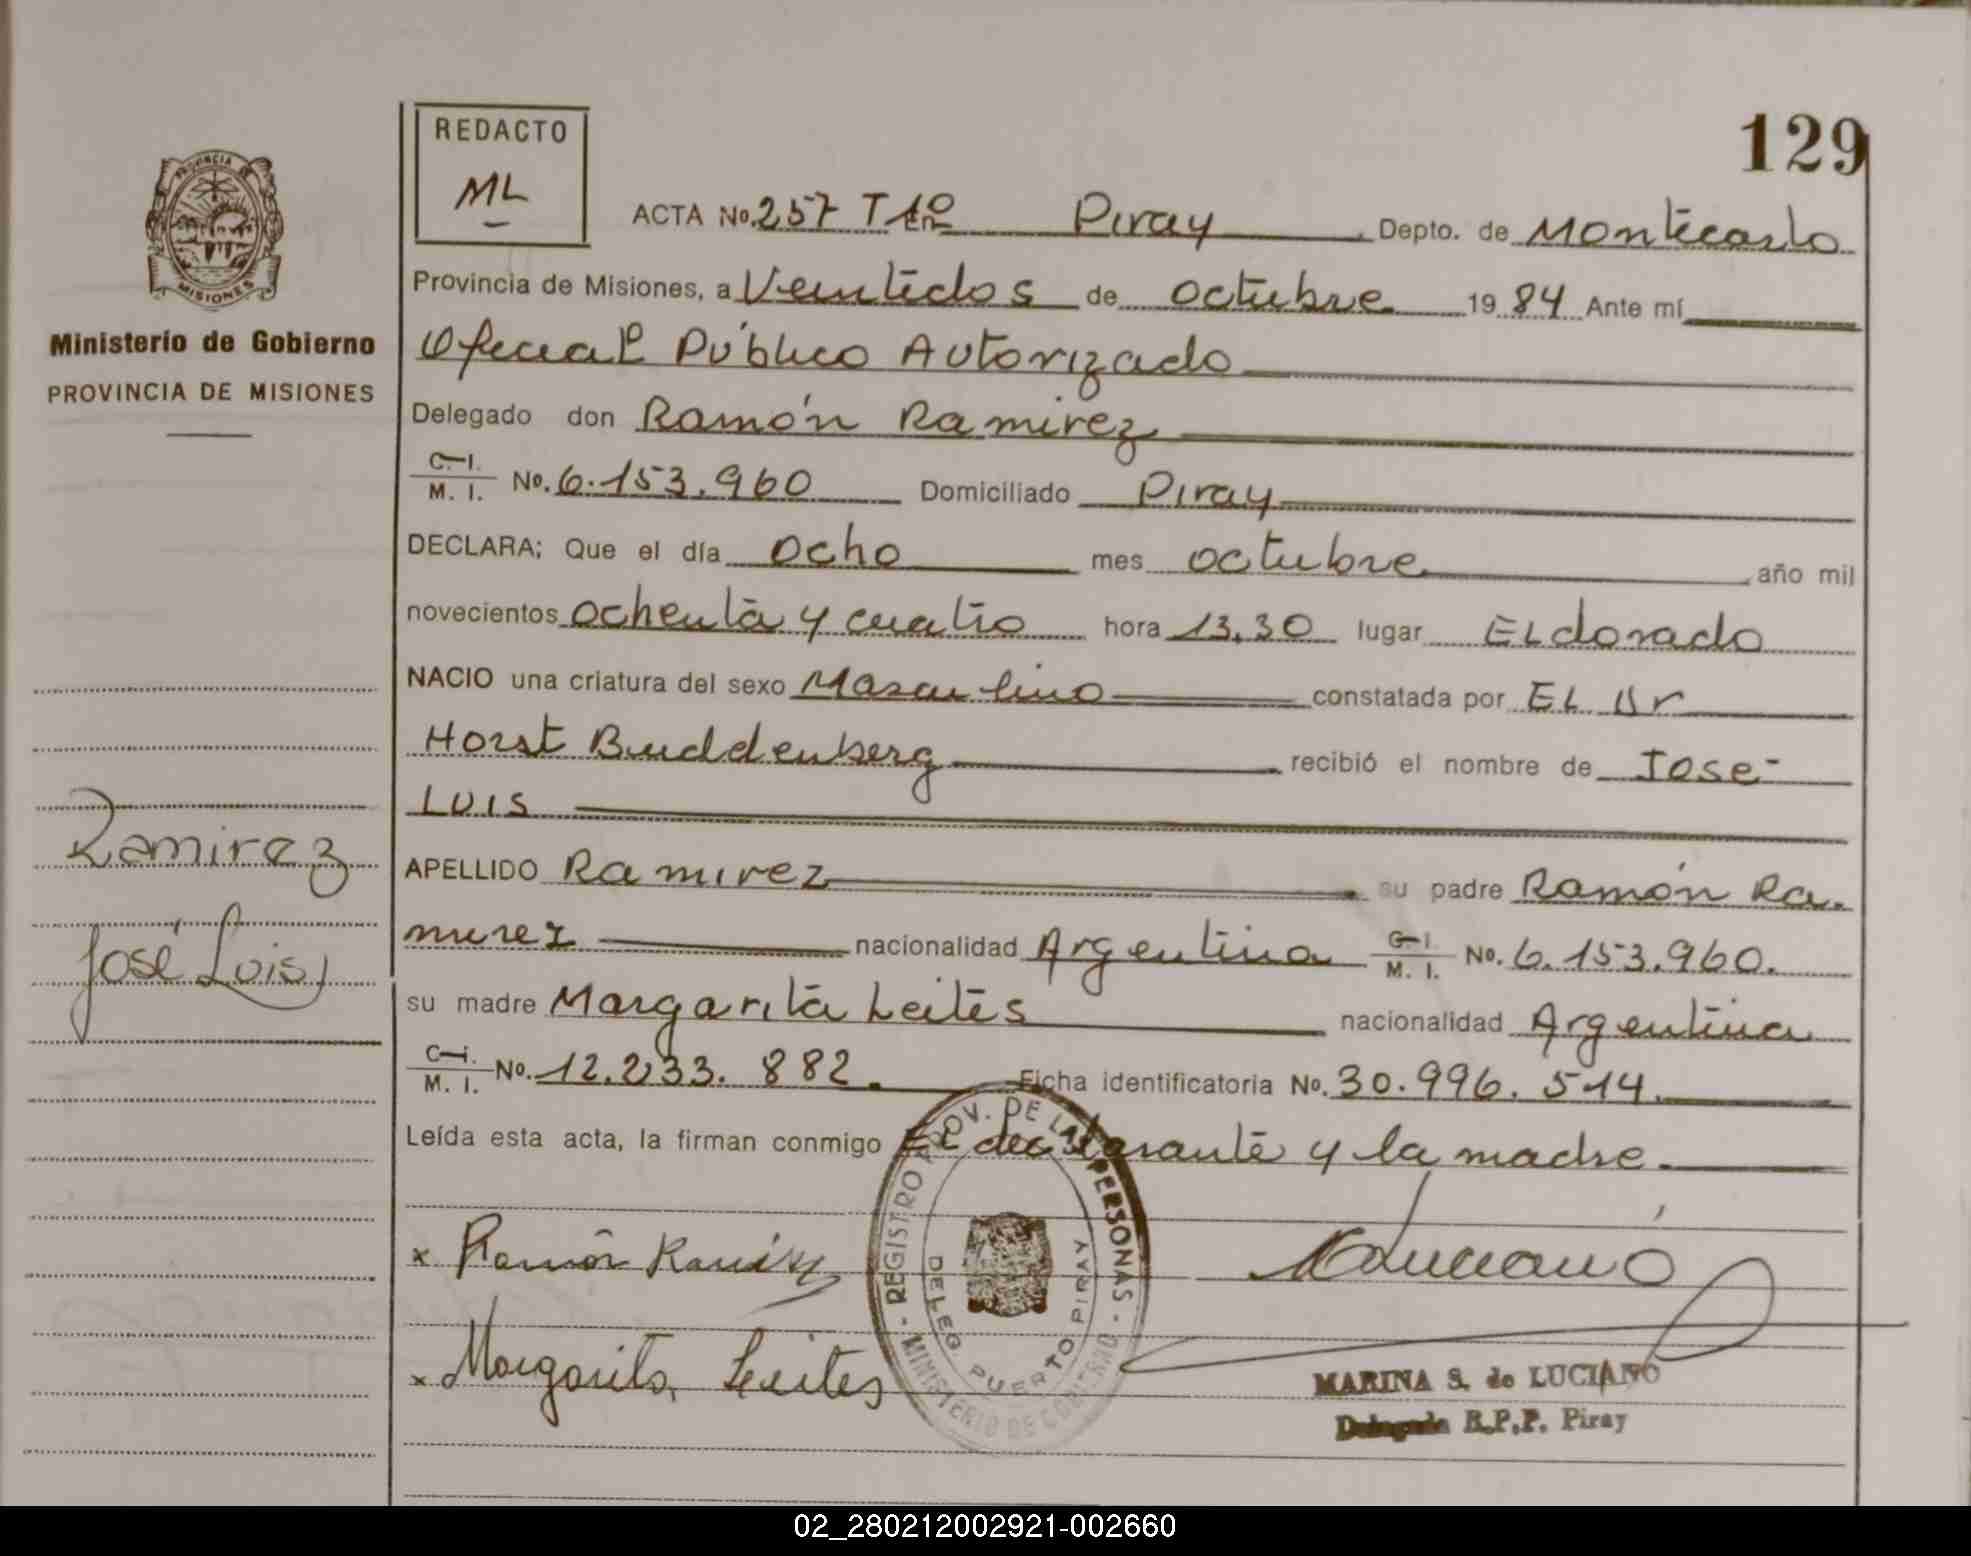 129
REDACTO
ML
ACTA No. 257 Tº 1º En Piray, Depto. de Montecarlo
Provincia de Misiones, a Veintidos de octubre 1984 Ante mí
Oficial Público Autorizado
Delegado don Ramón Ramirez
C. I. M. I. No. 6.153.960 Domiciliado Piray
DECLARA; Que el día ocho mes octubre, año mil
novecientos ochenta y cuatro hora 13,30 lugar ELdorado
NACIO una criatura del sexo Masculino constatada por EL Dr
Horst Buddenberg recibió el nombre de Jose
Luis
APELLIDO Ramirez su padre Ramón Ra-
mirez nacionalidad Argentina C. I. M. I. No. 6.153.960.
su madre Margarita Leites nacionalidad Argentina
C. I. M. I. No. 12.233.882. Ficha identificatoria No. 30.996.514.
Leída esta acta, la firman conmigo El declarante y la madre.
x Ramón Ramirez
x Margarita Leites
Luciano
MARINA S. de LUCIANO
Delegada R.P.P. Piray
REGISTRO PROV. DE LAS PERSONAS
MINISTERIO DE GOBIERNO
DELEG. PUERTO PIRAY
PROVINCIA DE
MISIONES
Ministerio de Gobierno
PROVINCIA DE MISIONES
Ramirez
José Luis
02_280212002921-002660